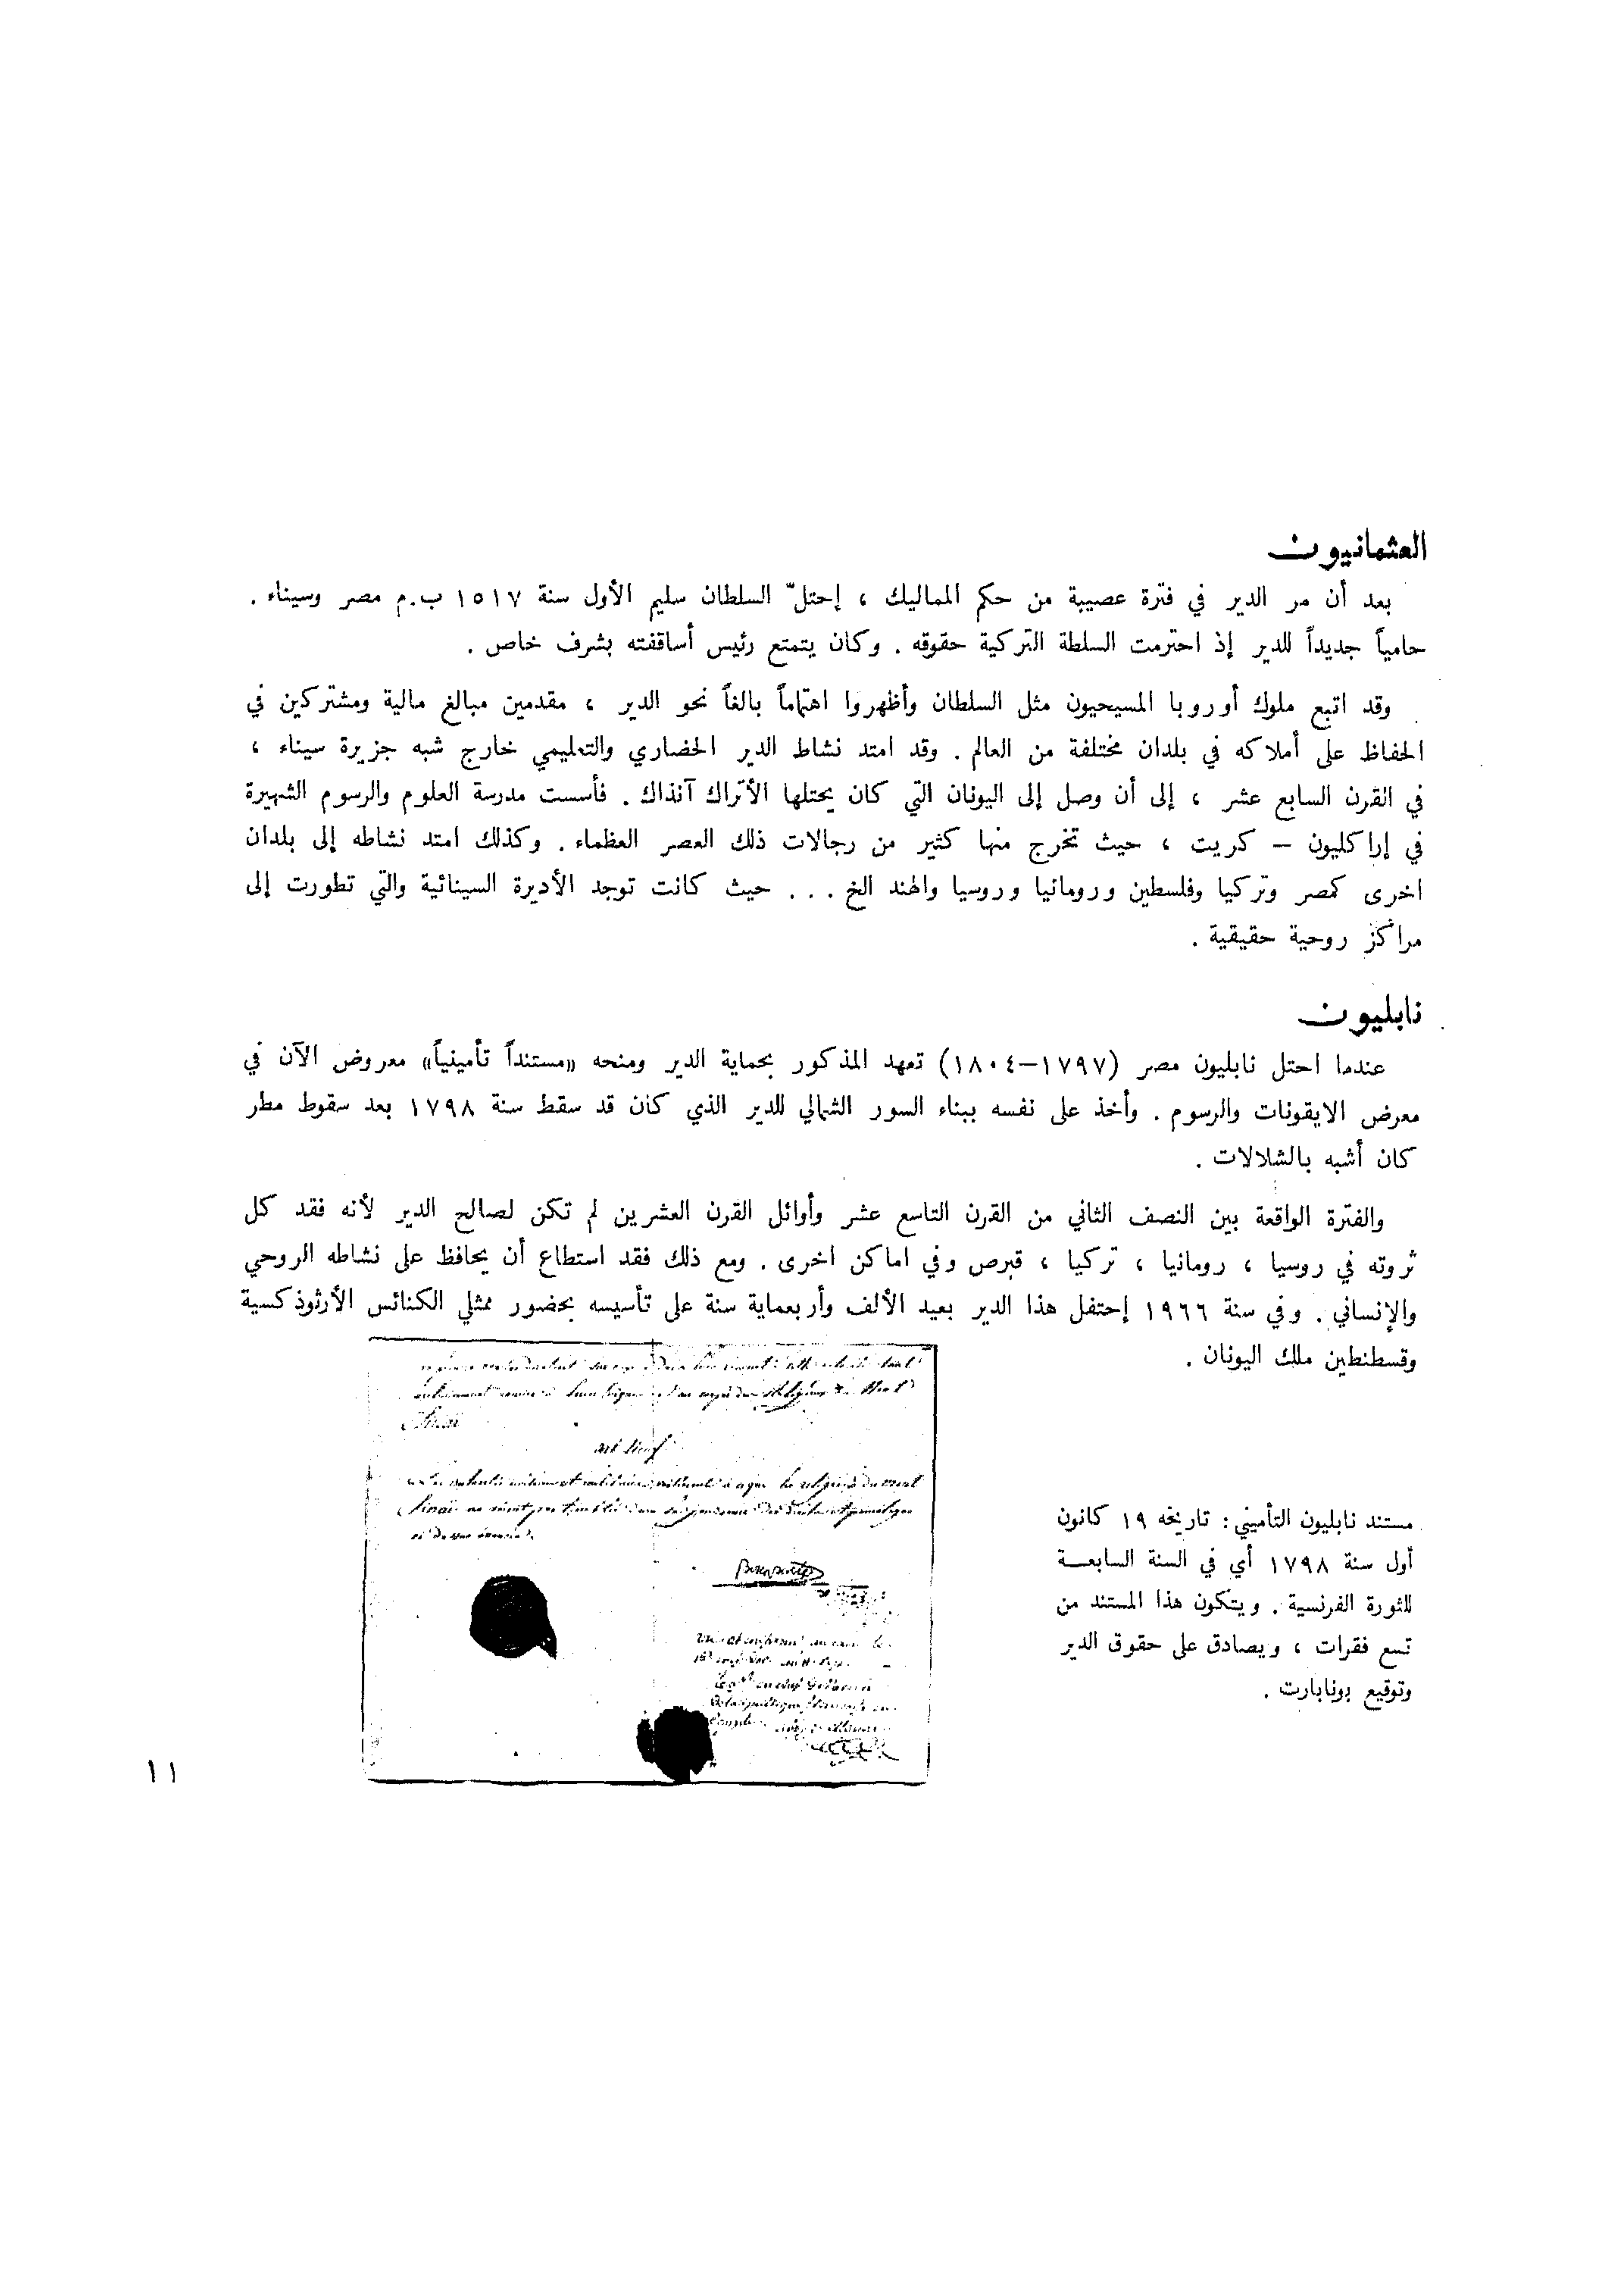 العثمانيون
بعد أن مر الدير في فترة عصيبة من حكم المماليك ، إحتلّ السلطان سليم الأول سنة ١٥١٧ ب.م مصر وسيناء .
حامياً جديداً للدير إذ احترمت السلطة التركية حقوقه . وكان يتمتع رئيس أساقفته بشرف خاص .
وقد اتبع ملوك أوروبا المسيحيون مثل السلطان وأظهروا اهتماماً بالغاً نحو الدير ، مقدمين مبالغ مالية ومشتركين في
الحفاظ على أملاكه في بلدان مختلفة من العالم . وقد امتد نشاط الدير الحضاري والتعليمي خارج شبه جزيرة سيناء ،
في القرن السابع عشر ، إلى أن وصل إلى اليونان التي كان يحتلها الأتراك آنذاك . فأسست مدرسة العلوم والرسوم الشهيرة
في إراكليون – كريت ، حيث تخرج منها كثير من رجالات ذلك العصر العظماء . وكذلك امتد نشاطه إلى بلدان
اخرى كمصر وتركيا وفلسطين ورومانيا وروسيا والهند الخ . . . حيث كانت توجد الأديرة السينائية والتي تطورت إلى
مراكز روحية حقيقية .
نابليون
عندما احتل نابليون مصر (١٧٩٧–١٨٠٤) تعهد المذكور بحماية الدير ومنحه «مستنداً تأمينياً» معروض الآن في
معرض الايقونات والرسوم . وأخذ على نفسه ببناء السور الشمالي للدير الذي كان قد سقط سنة ١٧٩٨ بعد سقوط مطر
كان أشبه بالشلالات .
والفترة الواقعة بين النصف الثاني من القرن التاسع عشر وأوائل القرن العشرين لم تكن لصالح الدير لأنه فقد كل
ثروته في روسيا ، رومانيا ، تركيا ، قبرص وفي اماكن اخرى . ومع ذلك فقد استطاع أن يحافظ على نشاطه الروحي
والإنساني . وفي سنة ١٩٦٦ إحتفل هذا الدير بعيد الألف وأربعماية سنة على تأسيسه بحضور ممثلي الكنائس الأرثوذكسية
وقسطنطين ملك اليونان .
مستند نابليون التأميني : تاريخه ١٩ كانون
أول سنة ١٧٩٨ أي في السنة السابعة
للثورة الفرنسية . ويتكون هذا المستند من
تسع فقرات ، ويصادق على حقوق الدير
وتوقيع بونابارت .
Sinai
Bonaparte
١١